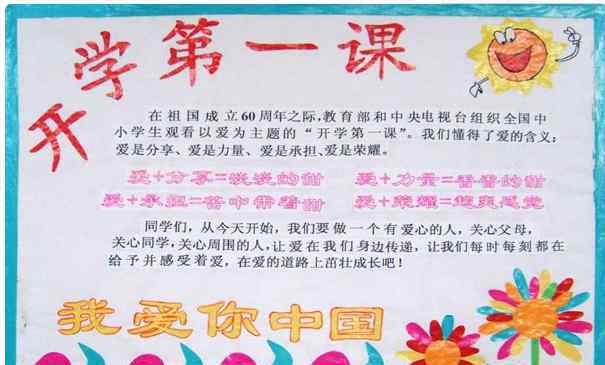 开学第一课
在祖国成立60周年之际,教育部和中央电视台组织全国中
小学生观看以爱为主题的“开学第一课”。我们懂得了爱的含义:
爱是分享、爱是力量、爱是承担、爱是荣耀。
爱+分享=淡淡的甜 爱+力量=香香的甜
爱+承担=苦中带着甜 爱+荣耀=超爽感觉
同学们，从今天开始，我们要做一个有爱心的人，关心父母，
关心同学，关心周围的人，让爱在我们身边传递，让我们每时每刻都在
给予并感受着爱，在爱的道路上茁壮成长吧！
我爱你中国